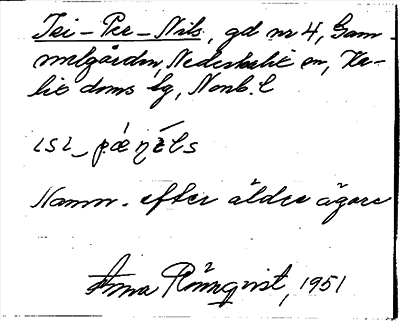 Isi-Per-Nils, gd nr 4, Gam-
melgården, Nederkalix sn, Ka-
lix doms lg, Norrb. l
Namn. efter äldre ägare
Anna Rönnqvist, 1951